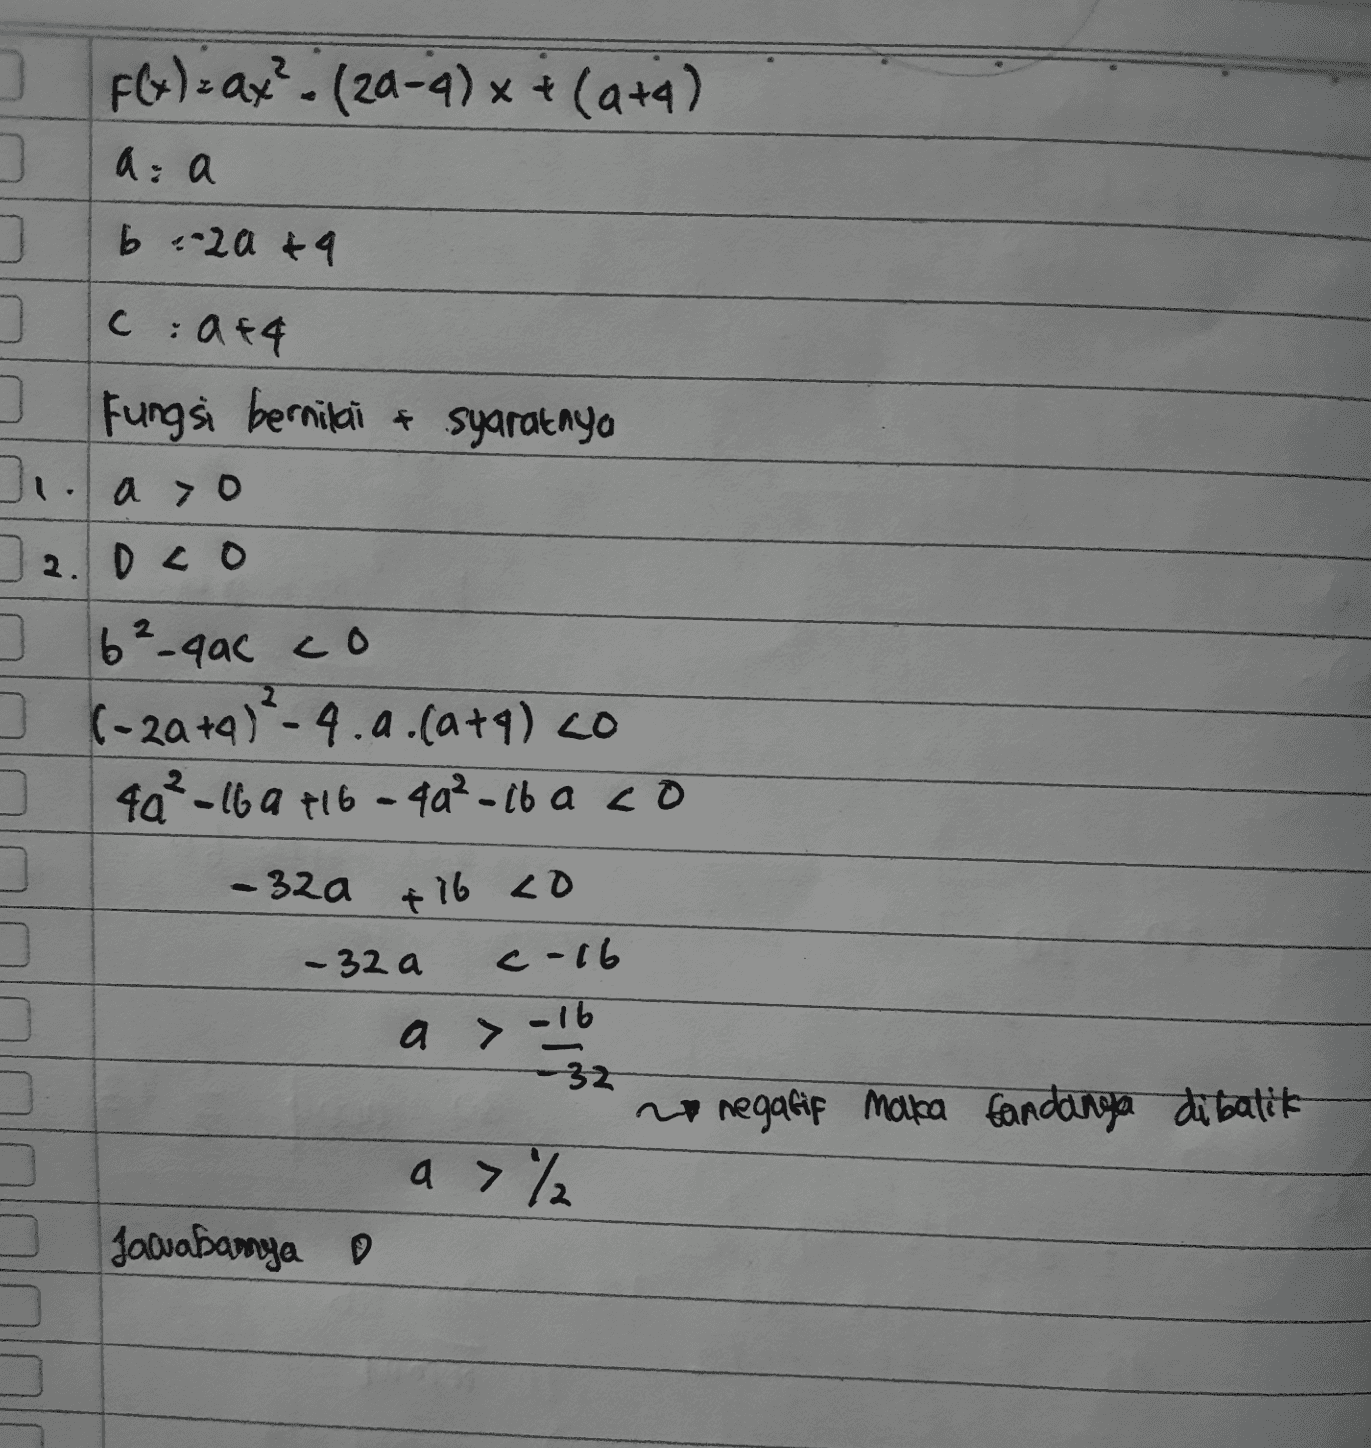 F(x) = ax² - (2a-4) x + (a+4)
a = a
b = -2a + 4
c = a+4
Fungsi bernilai + syaratnya
1. a > 0
2. D < 0
b² - 4ac < 0
(-2a+4)² - 4.a.(a+4) <0
4a² - 16a +16 - 4a² - 16 a < 0
-32a + 16 <0
-32a < -16
a > -16/-32
~> negatif maka tandanya dibalik
a > 1/2
Jawabannya D